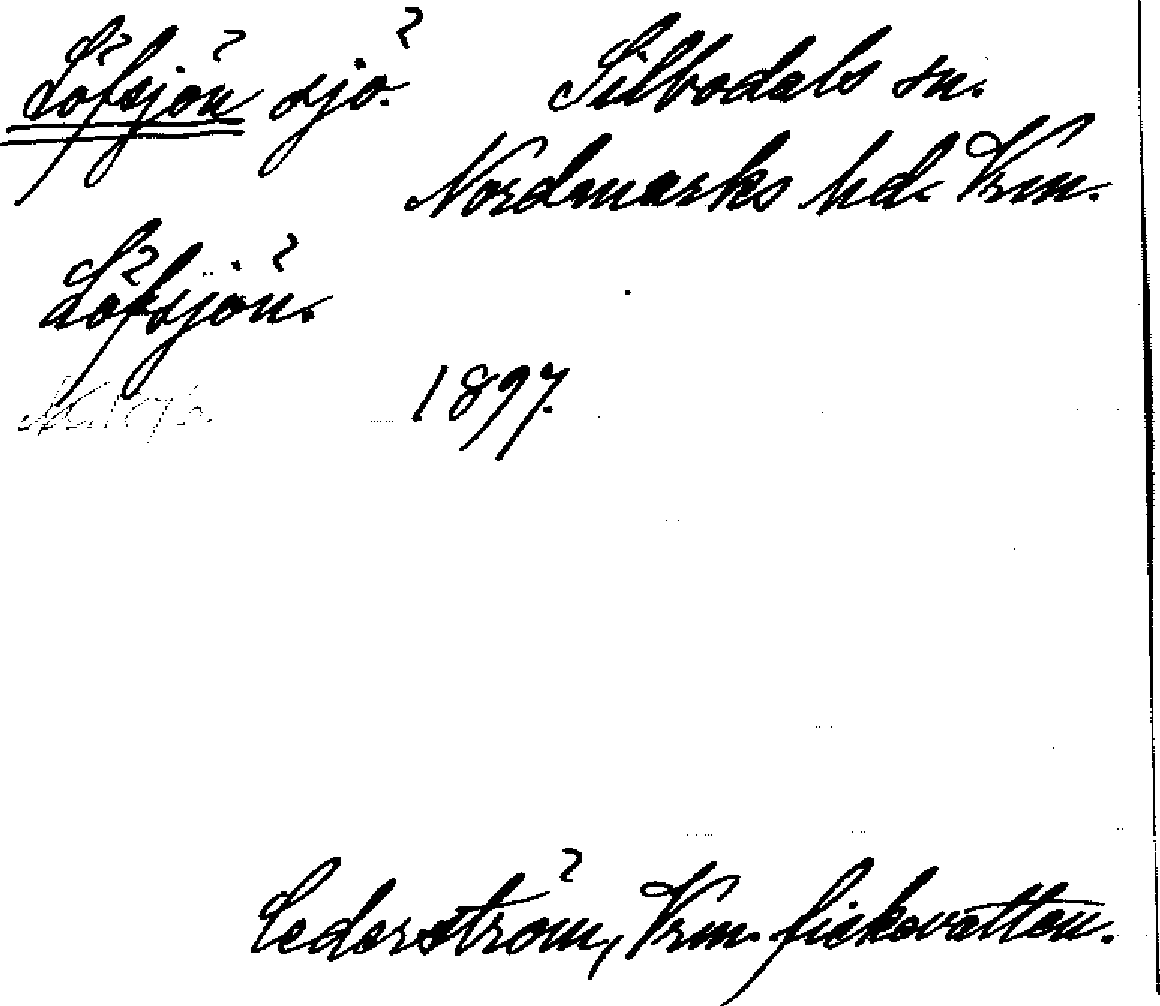 Löfsjön sjö. Silbodals sn.
Nordmarks hd. Vrm.
Löfsjön.
1897.
Cederström, Vrm. fiskevatten.